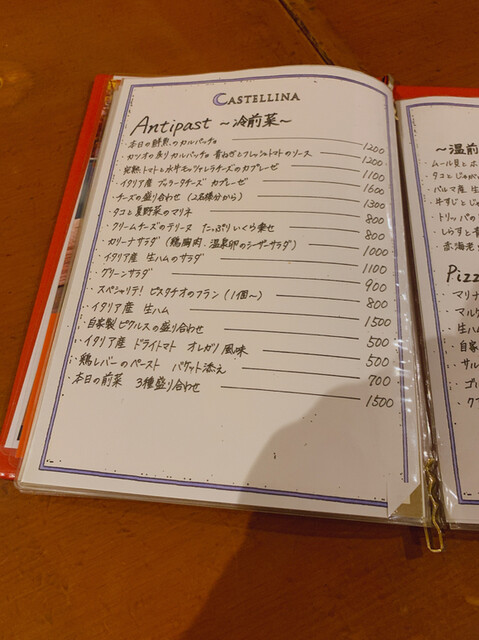 CASTELLINA
Antipast ～冷前菜～
・本日の鮮魚のカルパッチョ 1200
・カツオの炙りカルパッチョ 青ねぎとフレッシュトマトのソース 1200
・完熟トマトと水牛モッツァレラチーズのカプレーゼ 1100
・イタリア産 ブッラータチーズ カプレーゼ 1600
・チーズの盛り合わせ (2名様分から) 1300
・タコと夏野菜のマリネ 800
・クリームチーズのテリーヌ たっぷりいくら乗せ 800
・カリーナサラダ (鶏胸肉、温泉卵のシーザーサラダ) 1000
・イタリア産 生ハムのサラダ 1100
・グリーンサラダ 900
・スペシャリテ! ピスタチオのフラン (1個～) 800
・イタリア産 生ハム 1500
・自家製ピクルスの盛り合わせ 500
・イタリア産 ドライトマト オレガノ風味 500
・鶏レバーのペースト バケット添え 700
・本日の前菜 3種盛り合わせ 1500
～温前
・ムール貝と
・タコとじゃが
・パルマ産
・牛すじとじ
・トリッパの
・しらすと青
・赤海老
Pizz
・マリナ
・マルゲ
・生ハ
・自家
・サル
・ゴル
・クワ